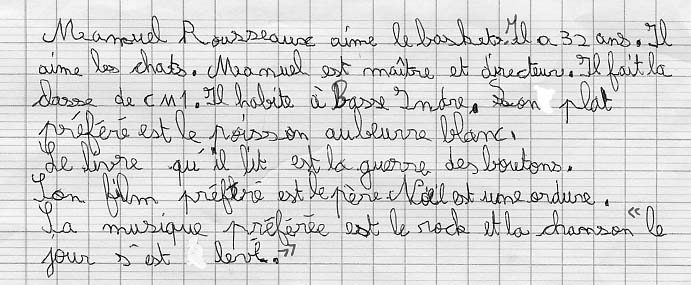 Manuel Rousseaux aime le basket. Il a 32 ans. Il
aime les chats. Manuel est maître et directeur. Il fait la
classe de CM1. Il habite à Basse Indre. Son plat
préféré est le poisson au beurre blanc.
Le livre qu'il lit est la guerre des boutons.
Son film préféré est le père Noël est une ordure.
Sa musique préférée est le rock et la chanson « le
jour s'est levé. »